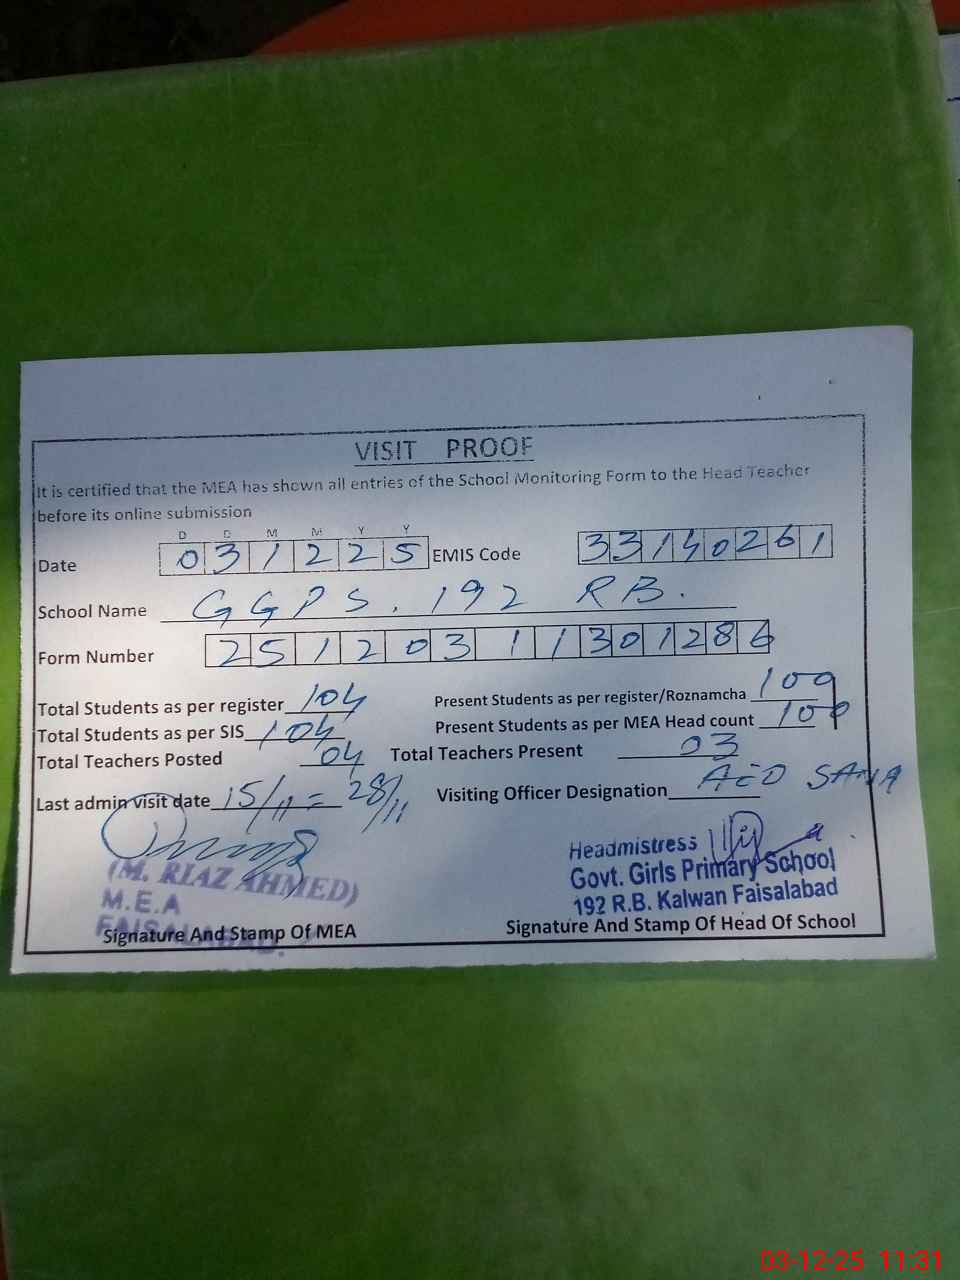 VISIT PROOF
It is certified that the MEA has shown all entries of the School Monitoring Form to the Head Teacher
before its online submission
D D M M Y Y
Date 031225 EMIS Code 33140261
School Name GGPS. 192 RB.
Form Number 25120311301286
Total Students as per register 104 Present Students as per register/Roznamcha 100
Total Students as per SIS 104 Present Students as per MEA Head count 100
Total Teachers Posted 04 Total Teachers Present 03
Last admin visit date 15/11 = 28/11 Visiting Officer Designation AEO
(M. RIAZ AHMED)
M.E.A
FAISALABAD.
Signature And Stamp Of MEA
Headmistress
Govt. Girls Primary School
192 R.B. Kalwan Faisalabad
Signature And Stamp Of Head Of School
03-12-25 11:31